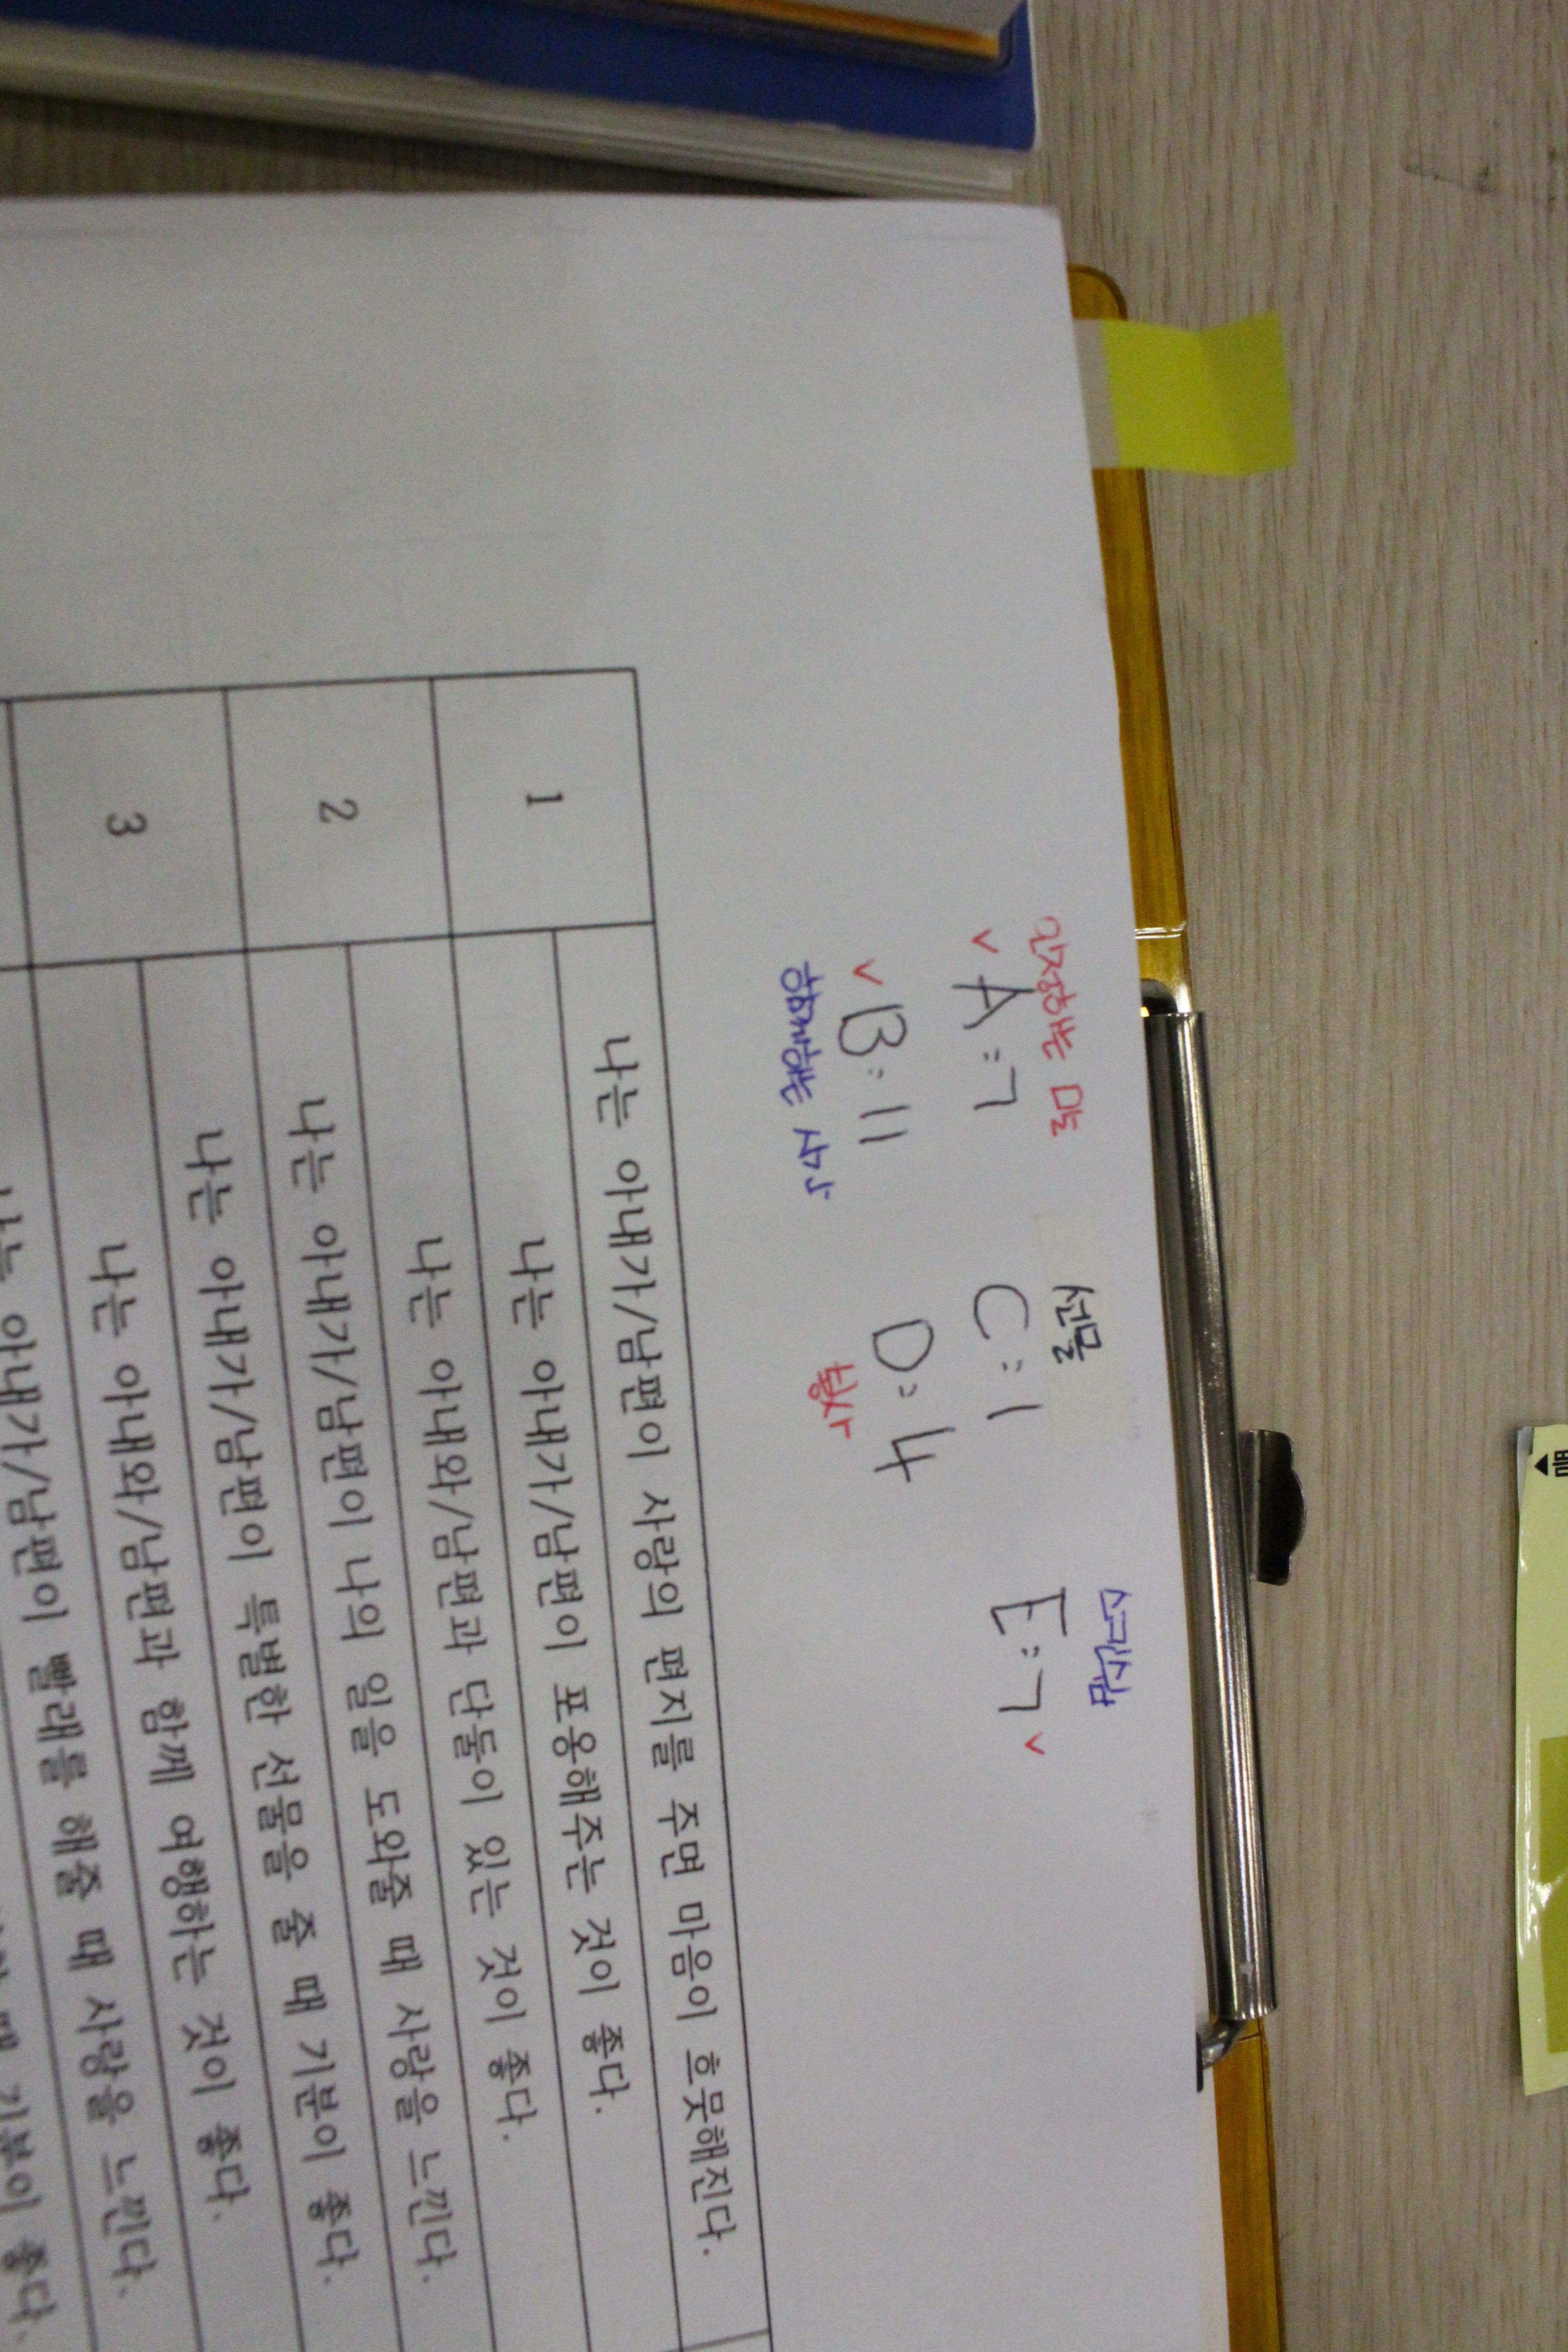 인정하는 말 선물
A:7 C:1 E:7
B:11 D:4
함께하는 시간
1
나는 아내가/남편이 사랑의 편지를 주면 마음이 흐뭇해진다.
나는 아내가/남편이 포옹해주는 것이 좋다.
2
나는 아내와/남편과 단둘이 있는 것이 좋다.
나는 아내가/남편이 나의 일을 도와줄 때 사랑을 느낀다.
3
나는 아내가/남편이 특별한 선물을 줄 때 기분이 좋다.
나는 아내와/남편과 함께 여행하는 것이 좋다.
나는 아내가/남편이 빨래를 해줄 때 사랑을 느낀다.
때 기분이 좋다.